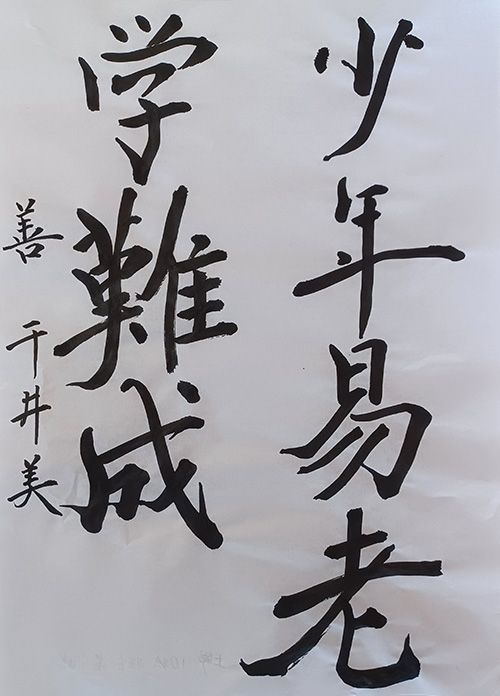 少年易老
学難成
善 千井美